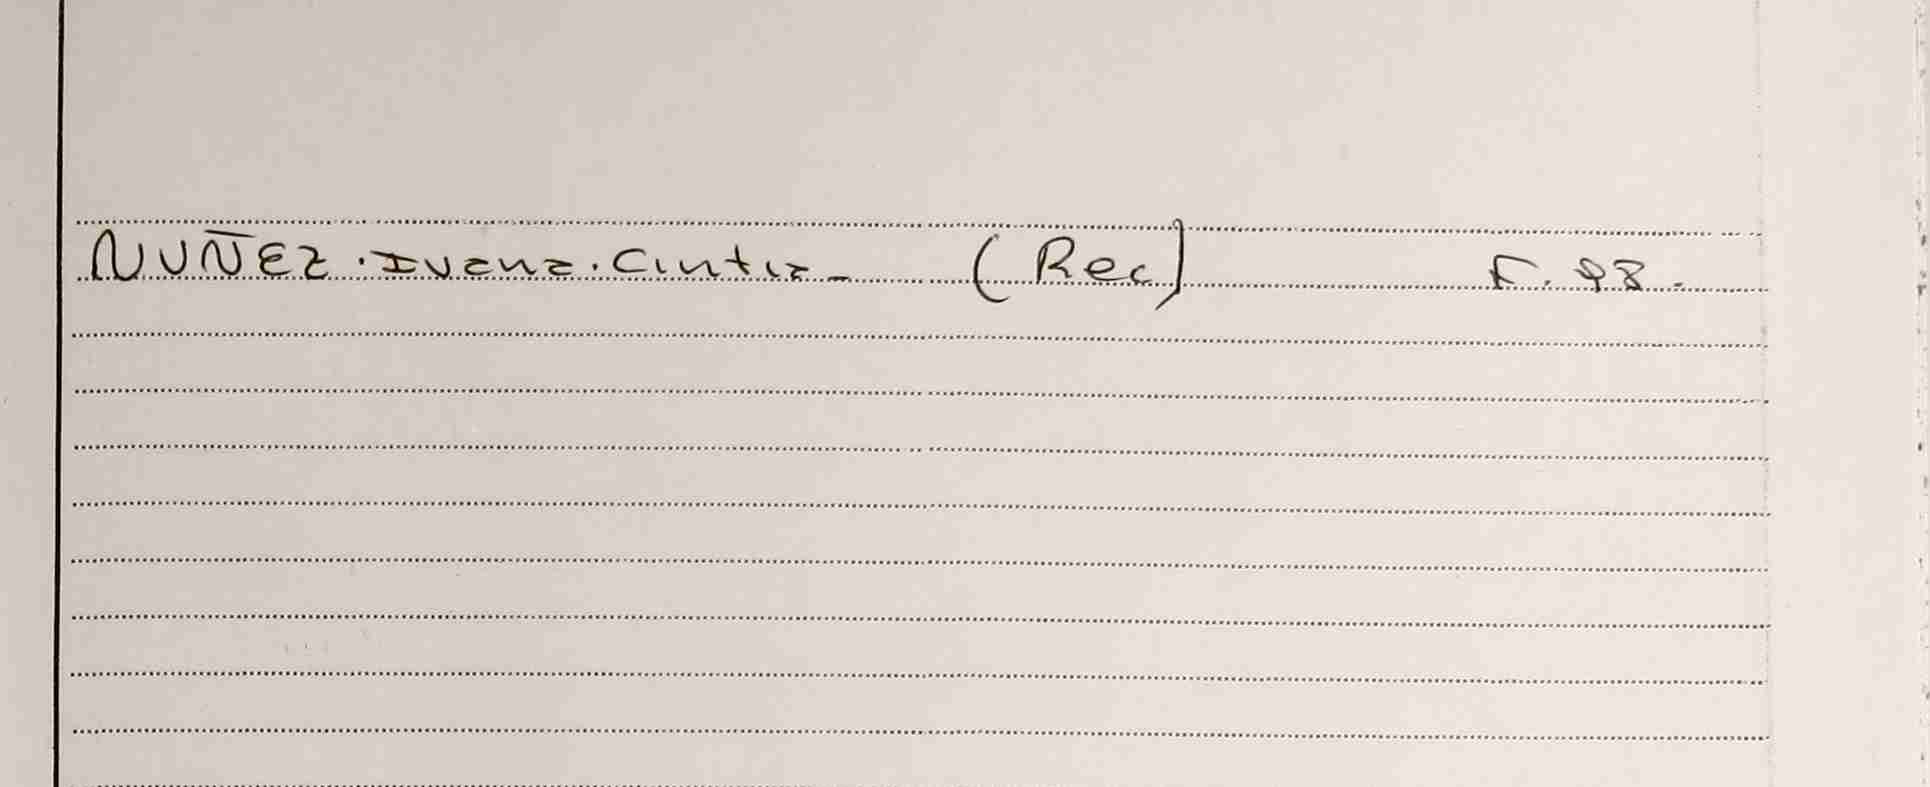 NUÑEZ. Ivana. Cintia_ (Rec) F. 98.